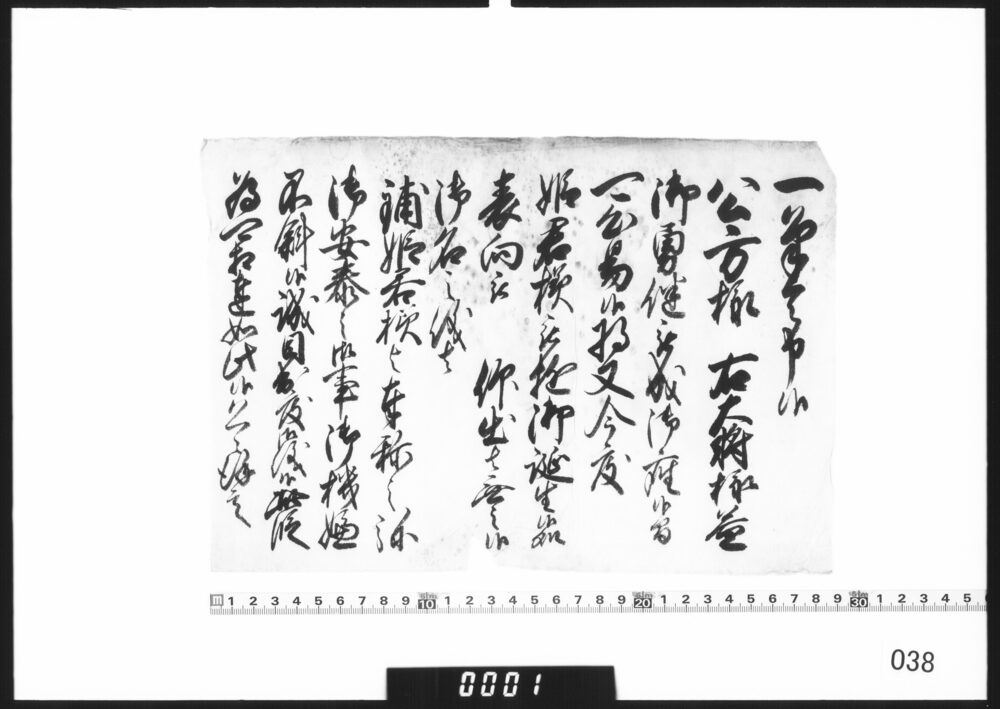 一筆令啓候
公方様 右大将様益
御勇健被成御座候間
可心易候将又今度
姫君様被遊御誕生候
表向被 仰出者無之候
御名之儀者
鋪姫君様与奉称之弥
御安泰之御事御機嫌
不斜候誠目出度御儀候此段
為可相達如此候恐々謹言
m 1 2 3 4 5 6 7 8 9 10 1 2 3 4 5 6 7 8 9 20 1 2 3 4 5 6 7 8 9 30 1 2 3 4 5
038
0001